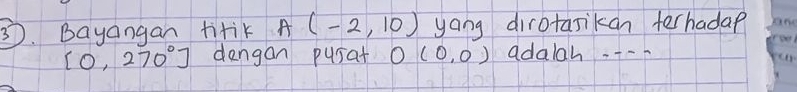 3). Bayangan titik A (-2, 10) yang dirotasikan terhadap
[0, 270°] dengan pusat O (0,0) adalah ....